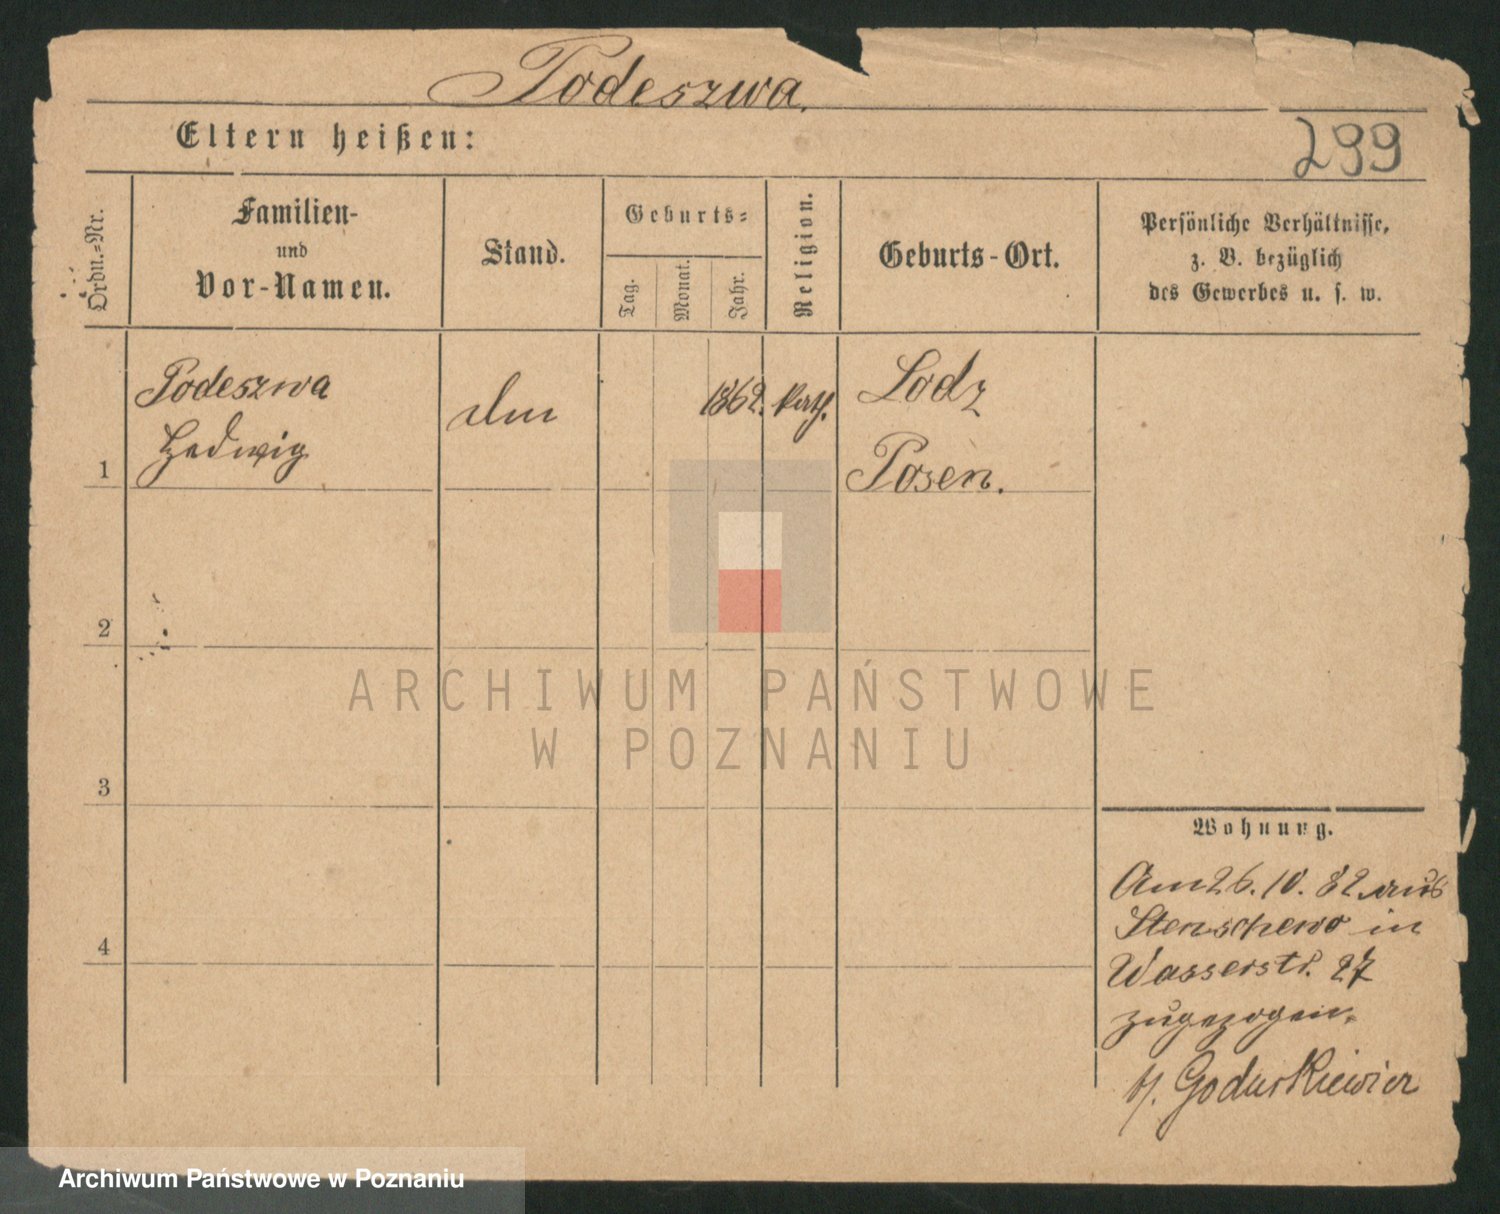 Podeszwa.
Eltern heißen:
299
Ordn.-Nr.
Familien-
und
Vor-Namen.
Stand.
Geburts-
Tag.
Monat.
Jahr.
Religion.
Geburts-Ort.
Persönliche Verhältnisse,
z. B. bezüglich
des Gewerbes u. s. w.
1
Podeszwa
Hedwig
1862.
kath.
Lodz
Posen.
2
3
4
Wohnung.
Am 26. 10. 82 aus
Stenschewo in
Wasserstr. 27
zugezogen.
b/.
ARCHIWUM PAŃSTWOWE
W POZNANIU
Archiwum Państwowe w Poznaniu